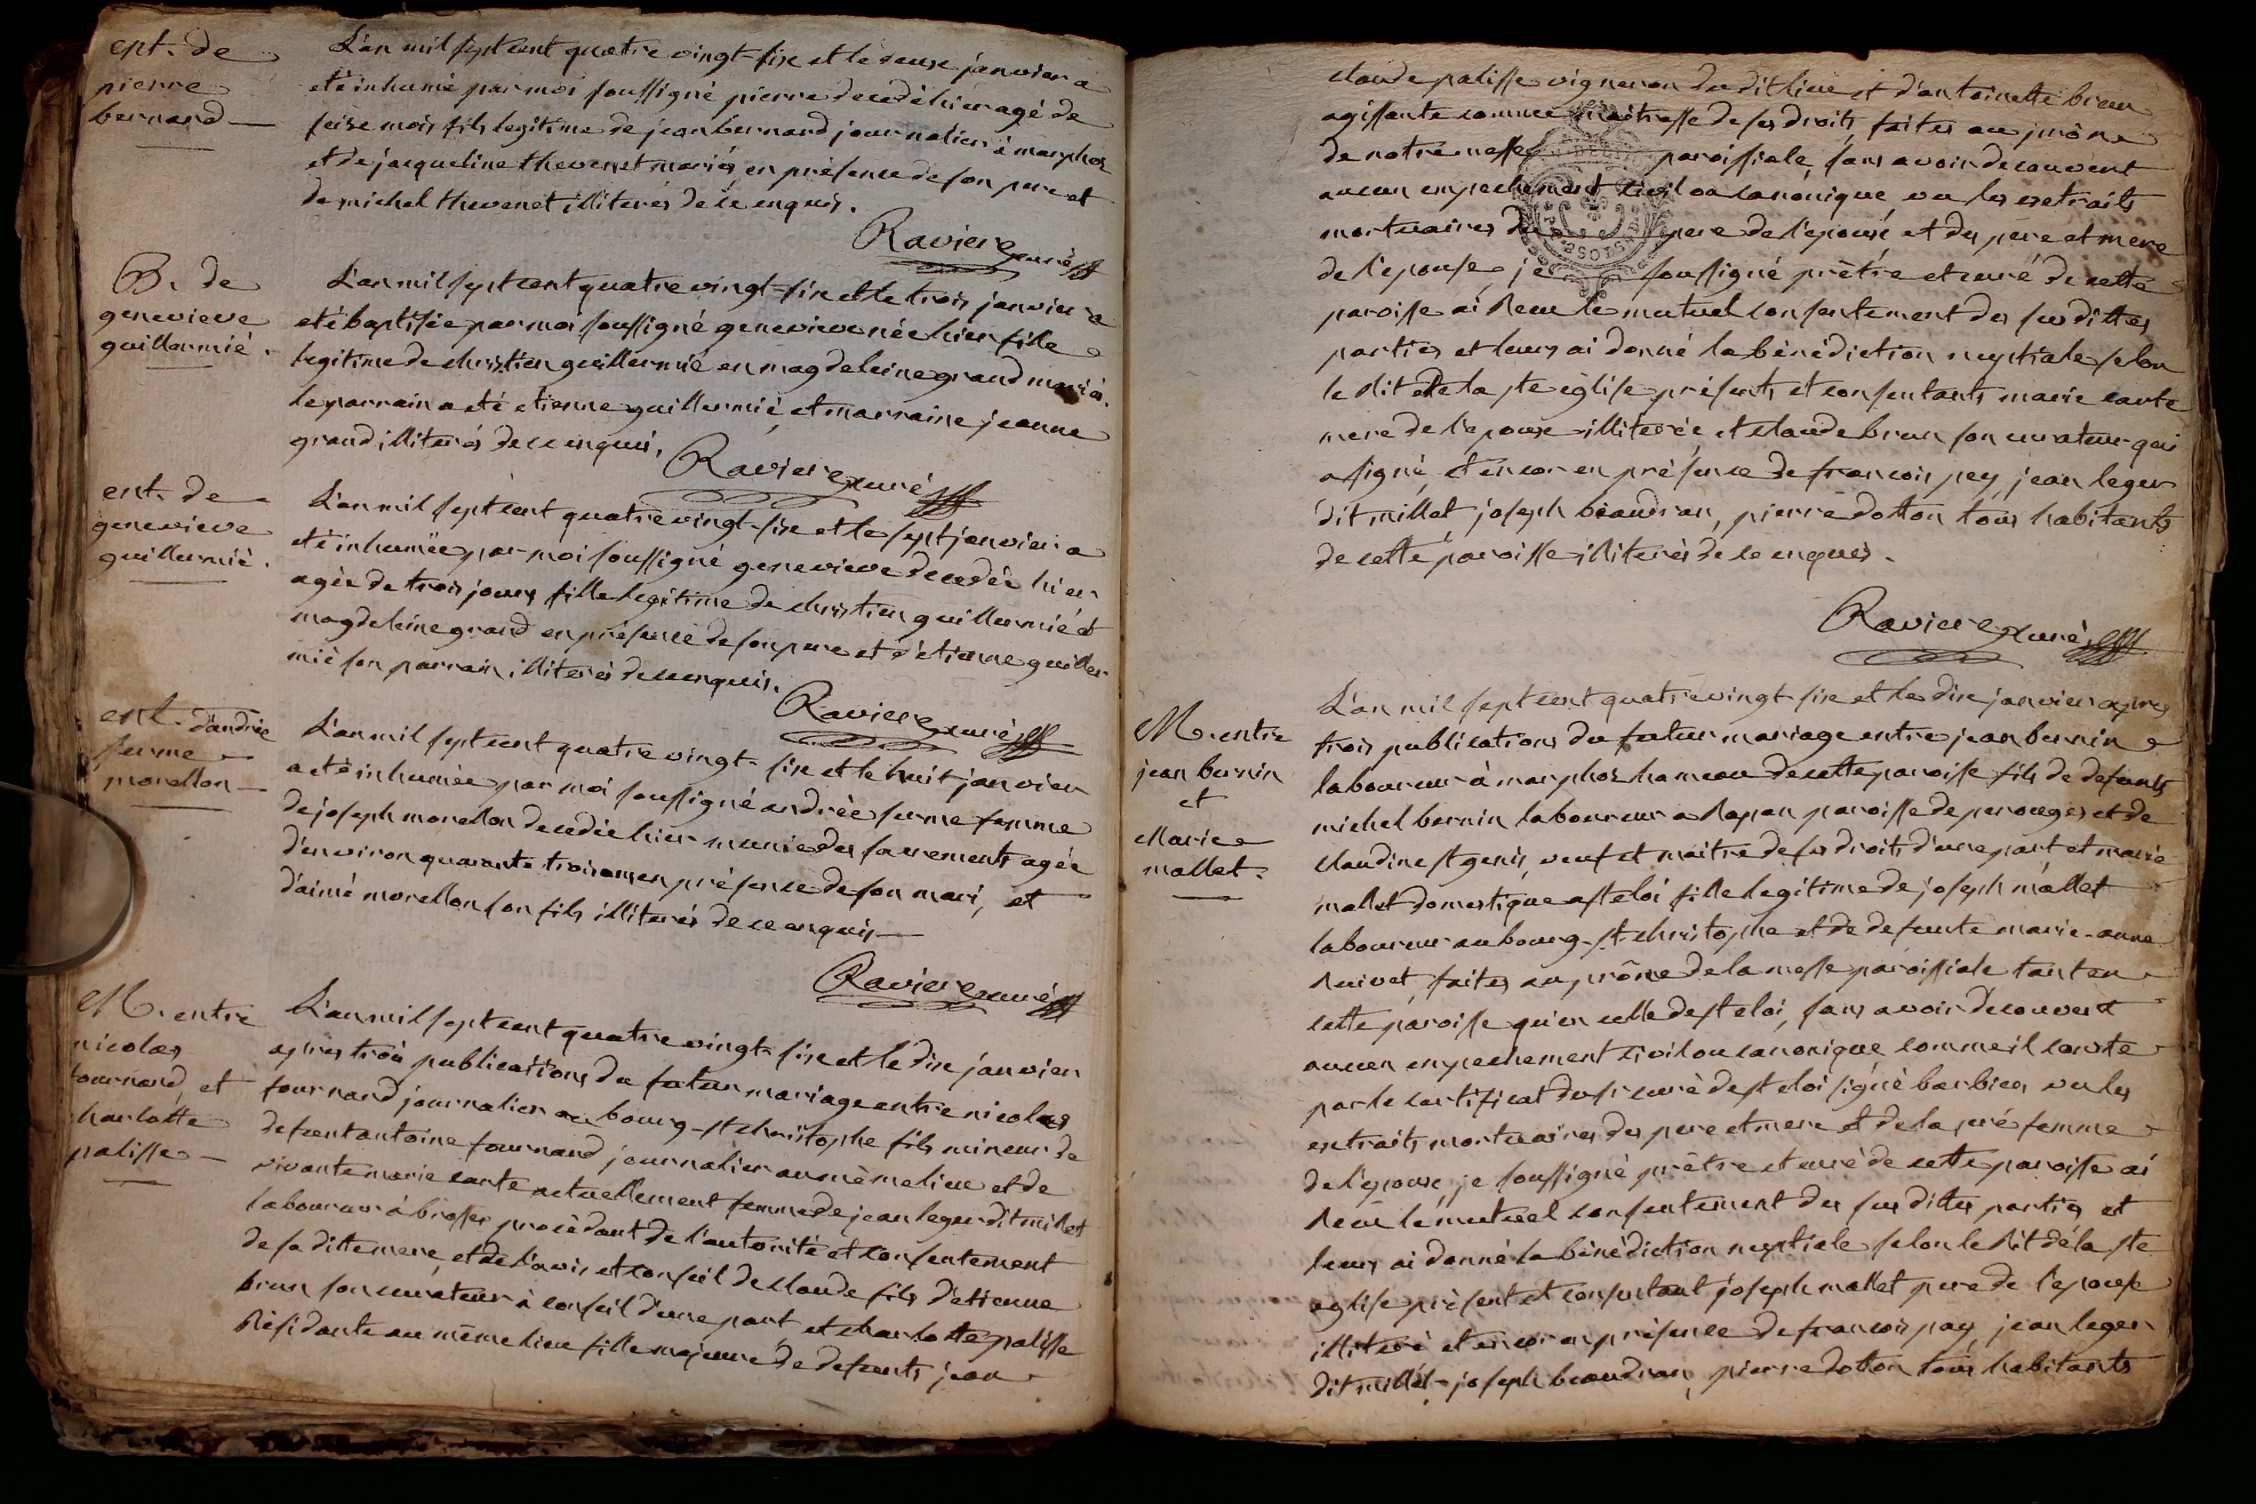 ent. de
pierre
bernard
L'an mil sept cent quatre vingt-six et le deux janvier a
eté inhumé par moi soussigné pierre decedé hier agé de
seise mois fils legitime de jean bernard journalier à marphoz
et de jacqueline thevenet mariés, en présence de son pere et
de michel thevenet illiterés de ce enquis.
Raviere curé
B. de
genevieve
guillermié.
L'an mil sept cent quatre vingt-six et le trois janvier a
eté baptisée par moi soussigné genevieve née hier fille
legitime de christien guillermié en magdeleine grand mariés.
le parrain a eté etienne guillermié, et marraine jeanne
grand illiterés de ce enquis.
Raviere curé
ent. de
genevieve
guillermié.
L'an mil sept cent quatre vingt-six et le sept janvier a
eté inhumée par moi soussigné genevieve decedée hier
agée de trois jours fille legitime de christien guillermié et
magdeleine grand en présence de son pere et d'etienne guiller
mié son parrain illiterés de ce enquis.
Raviere curé
ent. d'andrée
ferme
morellon
L'an mil sept cent quatre vingt-six et le huit janvier
a eté inhumée par moi soussigné andrée ferme femme
de joseph morellon decedée hier munie des sacrements agée
d'environ quarante trois ans en présence de son mari, et
d'aimé morellon son fils illiterés de ce enquis
Raviere curé
M. entre
nicolas
tournand et
charlotte
palisse
L'an mil sept cent quatre vingt-six et le dix janvier
apres trois publications du futur mariage entre nicolas
tournand journalier au bourg-st christophe fils mineur de
defunt antoine tournand journalier au même lieu et de
vivante marie carte actuellement femme de jean leger dit millet
laboureur à brosses procédant de l'autorité et consentement
de sa ditte mere, et de l'avis et conseil de claude fils d'etienne
brun son curateur à conseil d'une part et charlotte palisse
résidante au même lieu fille majeure de defunts jean
claude palisse vigneron du dit lieu et d'antoinette brun
agissante comme maitresse de ses droits, faites au prône
de notre messe paroissiale, sans avoir decouvert
aucun empechement civil ou canonique vu les extraits
mortuaires du pere de l'epoux, et des pere et mere
de l'epouse, je soussigné prêtre et curé de cette
paroisse ai reçu le mutuel consentement des sus dittes
parties et leurs ai donné la bénédiction nuptiale selon
le rit de la ste église présents et consentants marie carte
mere de l'epoux illiterée et claude brun son curateur qui
a signé, et encor en présence de francois pey, jean leger
dit millet, joseph beaudran, pierre dotton tous habitants
de cette paroisse illiterés de ce enquis.
Raviere curé
M. entre
jean bernin
et
Marie
mallet.
L'an mil sept cent quatre vingt-six et le dix janvier apres
trois publications du futur mariage entre jean bernin
laboureur à marphoz hameau de cette paroisse fils de defunts
michel bernin laboureur a rapan paroisse de perouges et de
claudine st genis, veuf et maitre de ses droits d'une part et marie
mallet domestique a st eloi fille legitime de joseph mallet
laboureur au bourg-st christophe et de defunte marie-anne
ruivet, faites au prône de la messe paroissiale tant en
cette paroisse qu'en celle de st eloi, sans avoir decouvert
aucun empechement civil ou canonique comme il conste
par le certificat du sr curé de st eloi signé barbier, vu les
extraits mortuaires des pere et mere et de la pré femme
de l'epoux, je soussigné prêtre et curé de cette paroisse ai
reçu le mutuel consentement des sus dittes parties et
leurs ai donné la bénédiction nuptiale selon le rit de la ste
eglise présent et consentant joseph mallet pere de l'epouse
illiteré et encor en présence de francois pay, jean leger
dit millet, joseph beaudran, pierre dotton tous habitants